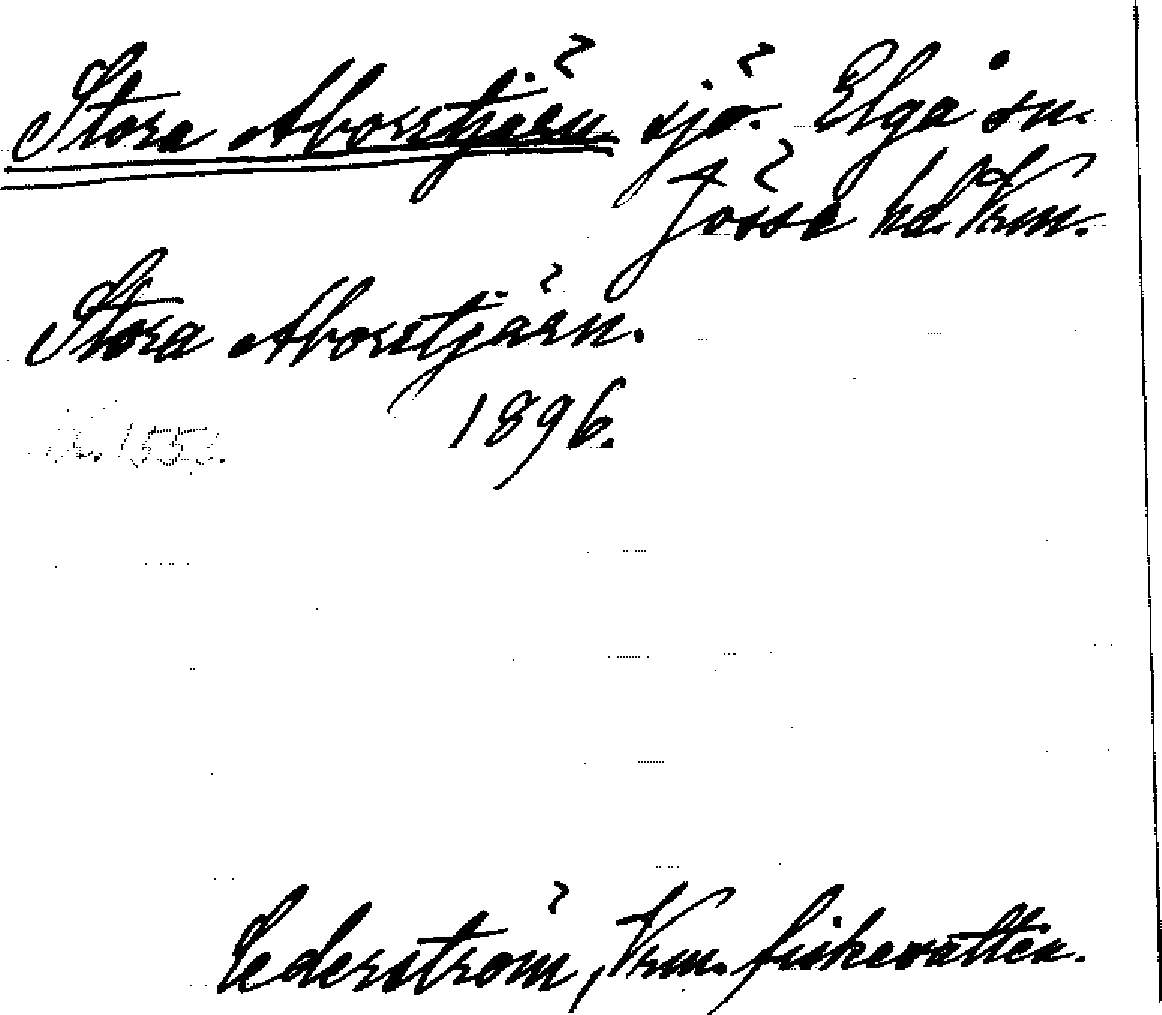 Stora Aborrtjärn sjö. Elga sn.
Jösse hd. Vrm.
Stora Aborrtjärn.
1896.
Cederström, Vrm. fiskevatten.